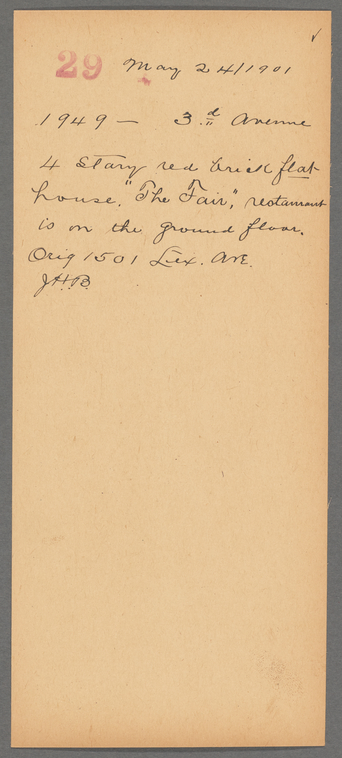 29 May 24/1901
1949 — 3rd Avenue
4 Story red brick flat
house. "The Fair", restaurant
is on the ground floor.
Orig 1501 Lex. Ave.
J.H.B.